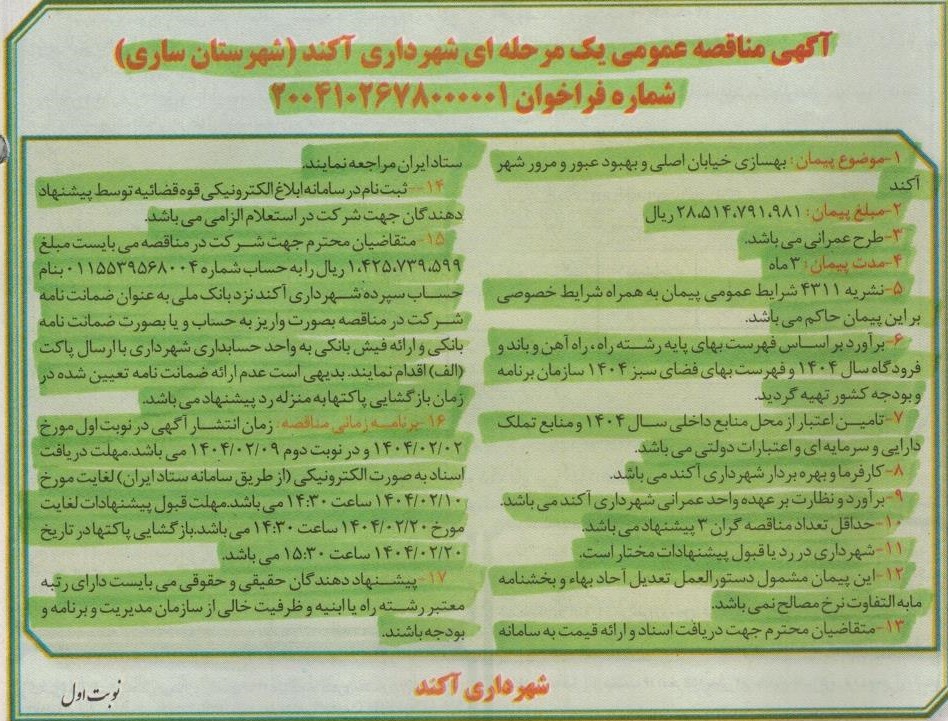 آگهی مناقصه عمومی یک مرحله ای شهرداری آکند (شهرستان ساری)
شماره فراخوان ۲۰۰۴۱۰۲۶۷۸۰۰۰۰۰۱
۱-موضوع پیمان: بهسازی خیابان اصلی و بهبود عبور و مرور شهر
آکند
۲-مبلغ پیمان: ۲۸،۵۱۴،۷۹۱،۹۸۱ ریال
۳-طرح عمرانی می باشد.
۴-مدت پیمان: ۳ ماه
۵-نشریه ۴۳۱۱ شرایط عمومی پیمان به همراه شرایط خصوصی
بر این پیمان حاکم می باشد.
۶-برآورد بر اساس فهرست بهای پایه رشته راه، راه آهن و باند و
فرودگاه سال ۱۴۰۴ و فهرست بهای فضای سبز ۱۴۰۴ سازمان برنامه
و بودجه کشور تهیه گردید.
۷-تامین اعتبار از محل منابع داخلی سال ۱۴۰۴ و منابع تملک
دارایی و سرمایه ای و اعتبارات دولتی می باشد.
۸-کارفرما و بهره بردار شهرداری آکند می باشد.
۹-برآورد و نظارت بر عهده واحد عمرانی شهرداری آکند می باشد.
۱۰-حداقل تعداد مناقصه گران ۳ پیشنهاد می باشد.
۱۱-شهرداری در رد یا قبول پیشنهادات مختار است.
۱۲-این پیمان مشمول دستورالعمل تعدیل آحاد بهاء و بخشنامه
مابه التفاوت نرخ مصالح نمی باشد.
۱۳-متقاضیان محترم جهت دریافت اسناد و ارائه قیمت به سامانه
ستاد ایران مراجعه نمایند.
۱۴-ثبت نام در سامانه ابلاغ الکترونیکی قوه قضائیه توسط پیشنهاد
دهندگان جهت شرکت در استعلام الزامی می باشد.
۱۵-متقاضیان محترم جهت شرکت در مناقصه می بایست مبلغ
۱،۴۲۵،۷۳۹،۵۹۹ ریال را به حساب شماره ۰۱۱۵۵۳۹۵۶۸۰۰۴ بنام
حساب سپرده شهرداری آکند نزد بانک ملی به عنوان ضمانت نامه
شرکت در مناقصه بصورت واریز به حساب و یا بصورت ضمانت نامه
بانکی و ارائه فیش بانکی به واحد حسابداری شهرداری با ارسال پاکت
(الف) اقدام نمایند. بدیهی است عدم ارائه ضمانت نامه تعیین شده در
زمان بازگشایی پاکتها به منزله رد پیشنهاد می باشد.
۱۶-برنامه زمانی مناقصه: زمان انتشار آگهی در نوبت اول مورخ
۱۴۰۴/۰۲/۰۲ و در نوبت دوم ۱۴۰۴/۰۲/۰۹ می باشد.مهلت دریافت
اسناد به صورت الکترونیکی (از طریق سامانه ستاد ایران) لغایت مورخ
۱۴۰۴/۰۲/۱۰ ساعت ۱۴:۳۰ می باشد.مهلت قبول پیشنهادات لغایت
مورخ ۱۴۰۴/۰۲/۲۰ ساعت ۱۴:۳۰ می باشد.بازگشایی پاکتها در تاریخ
۱۴۰۴/۰۲/۲۰ ساعت ۱۵:۳۰ می باشد.
۱۷-پیشنهاد دهندگان حقیقی و حقوقی می بایست دارای رتبه
معتبر رشته راه یا ابنیه و ظرفیت خالی از سازمان مدیریت و برنامه و
بودجه باشند.
شهرداری آکند
نوبت اول